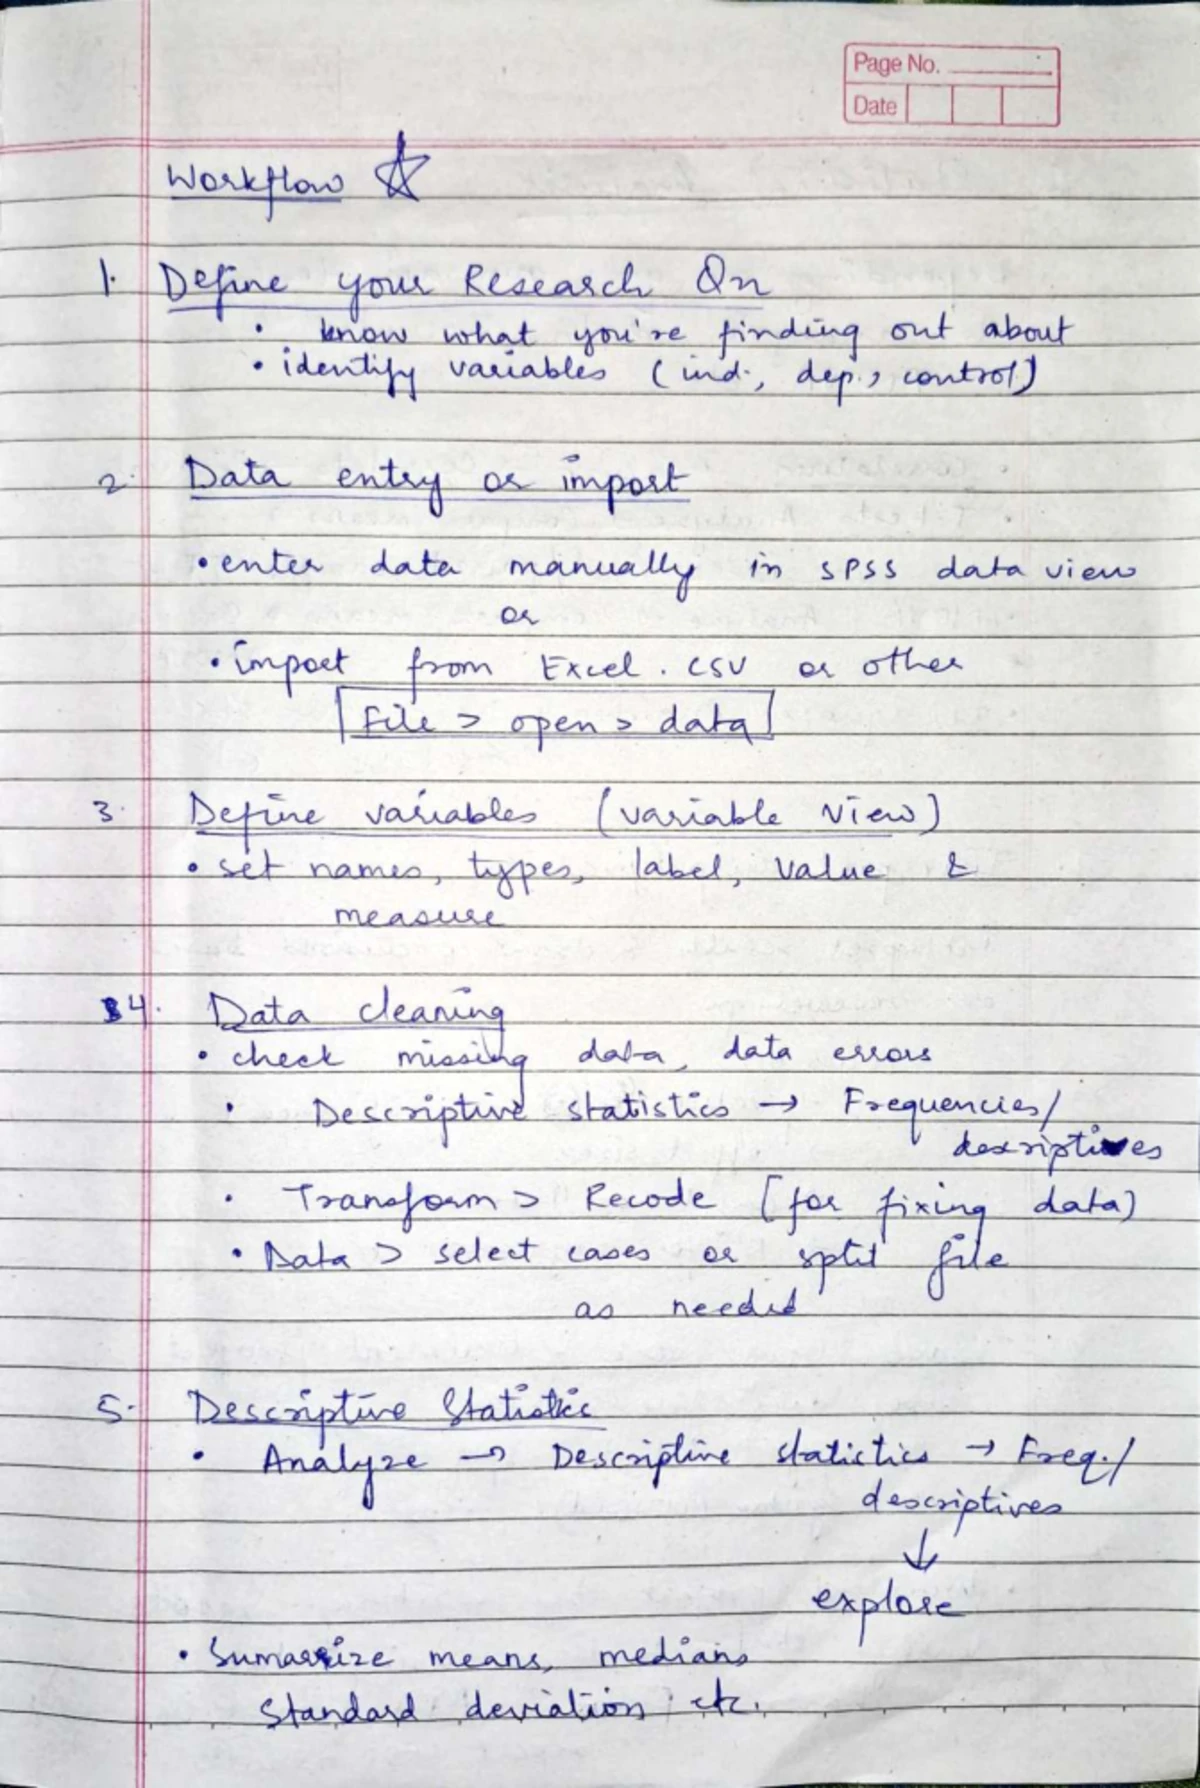 Page No.
Date
Workflow
1. Define your Research Qn
• know what you're finding out about
• identify variables (ind., dep., control)
2. Data entry or import
• enter data manually in SPSS data view
or
• import from Excel . CSV or other
File > open > data
3. Define variables (variable view)
• set names, types, label, value &
measure
4. Data cleaning
• check missing data, data errors
• Descriptive statistics → Frequencies/
descriptives
• Transform > Recode (for fixing data)
• Data > select cases or split file
as needed
5. Descriptive Statistics
• Analyze → Descriptive statistics → Freq./
descriptives
↓
explore
• Sumarize means, medians
Standard deviation etc.